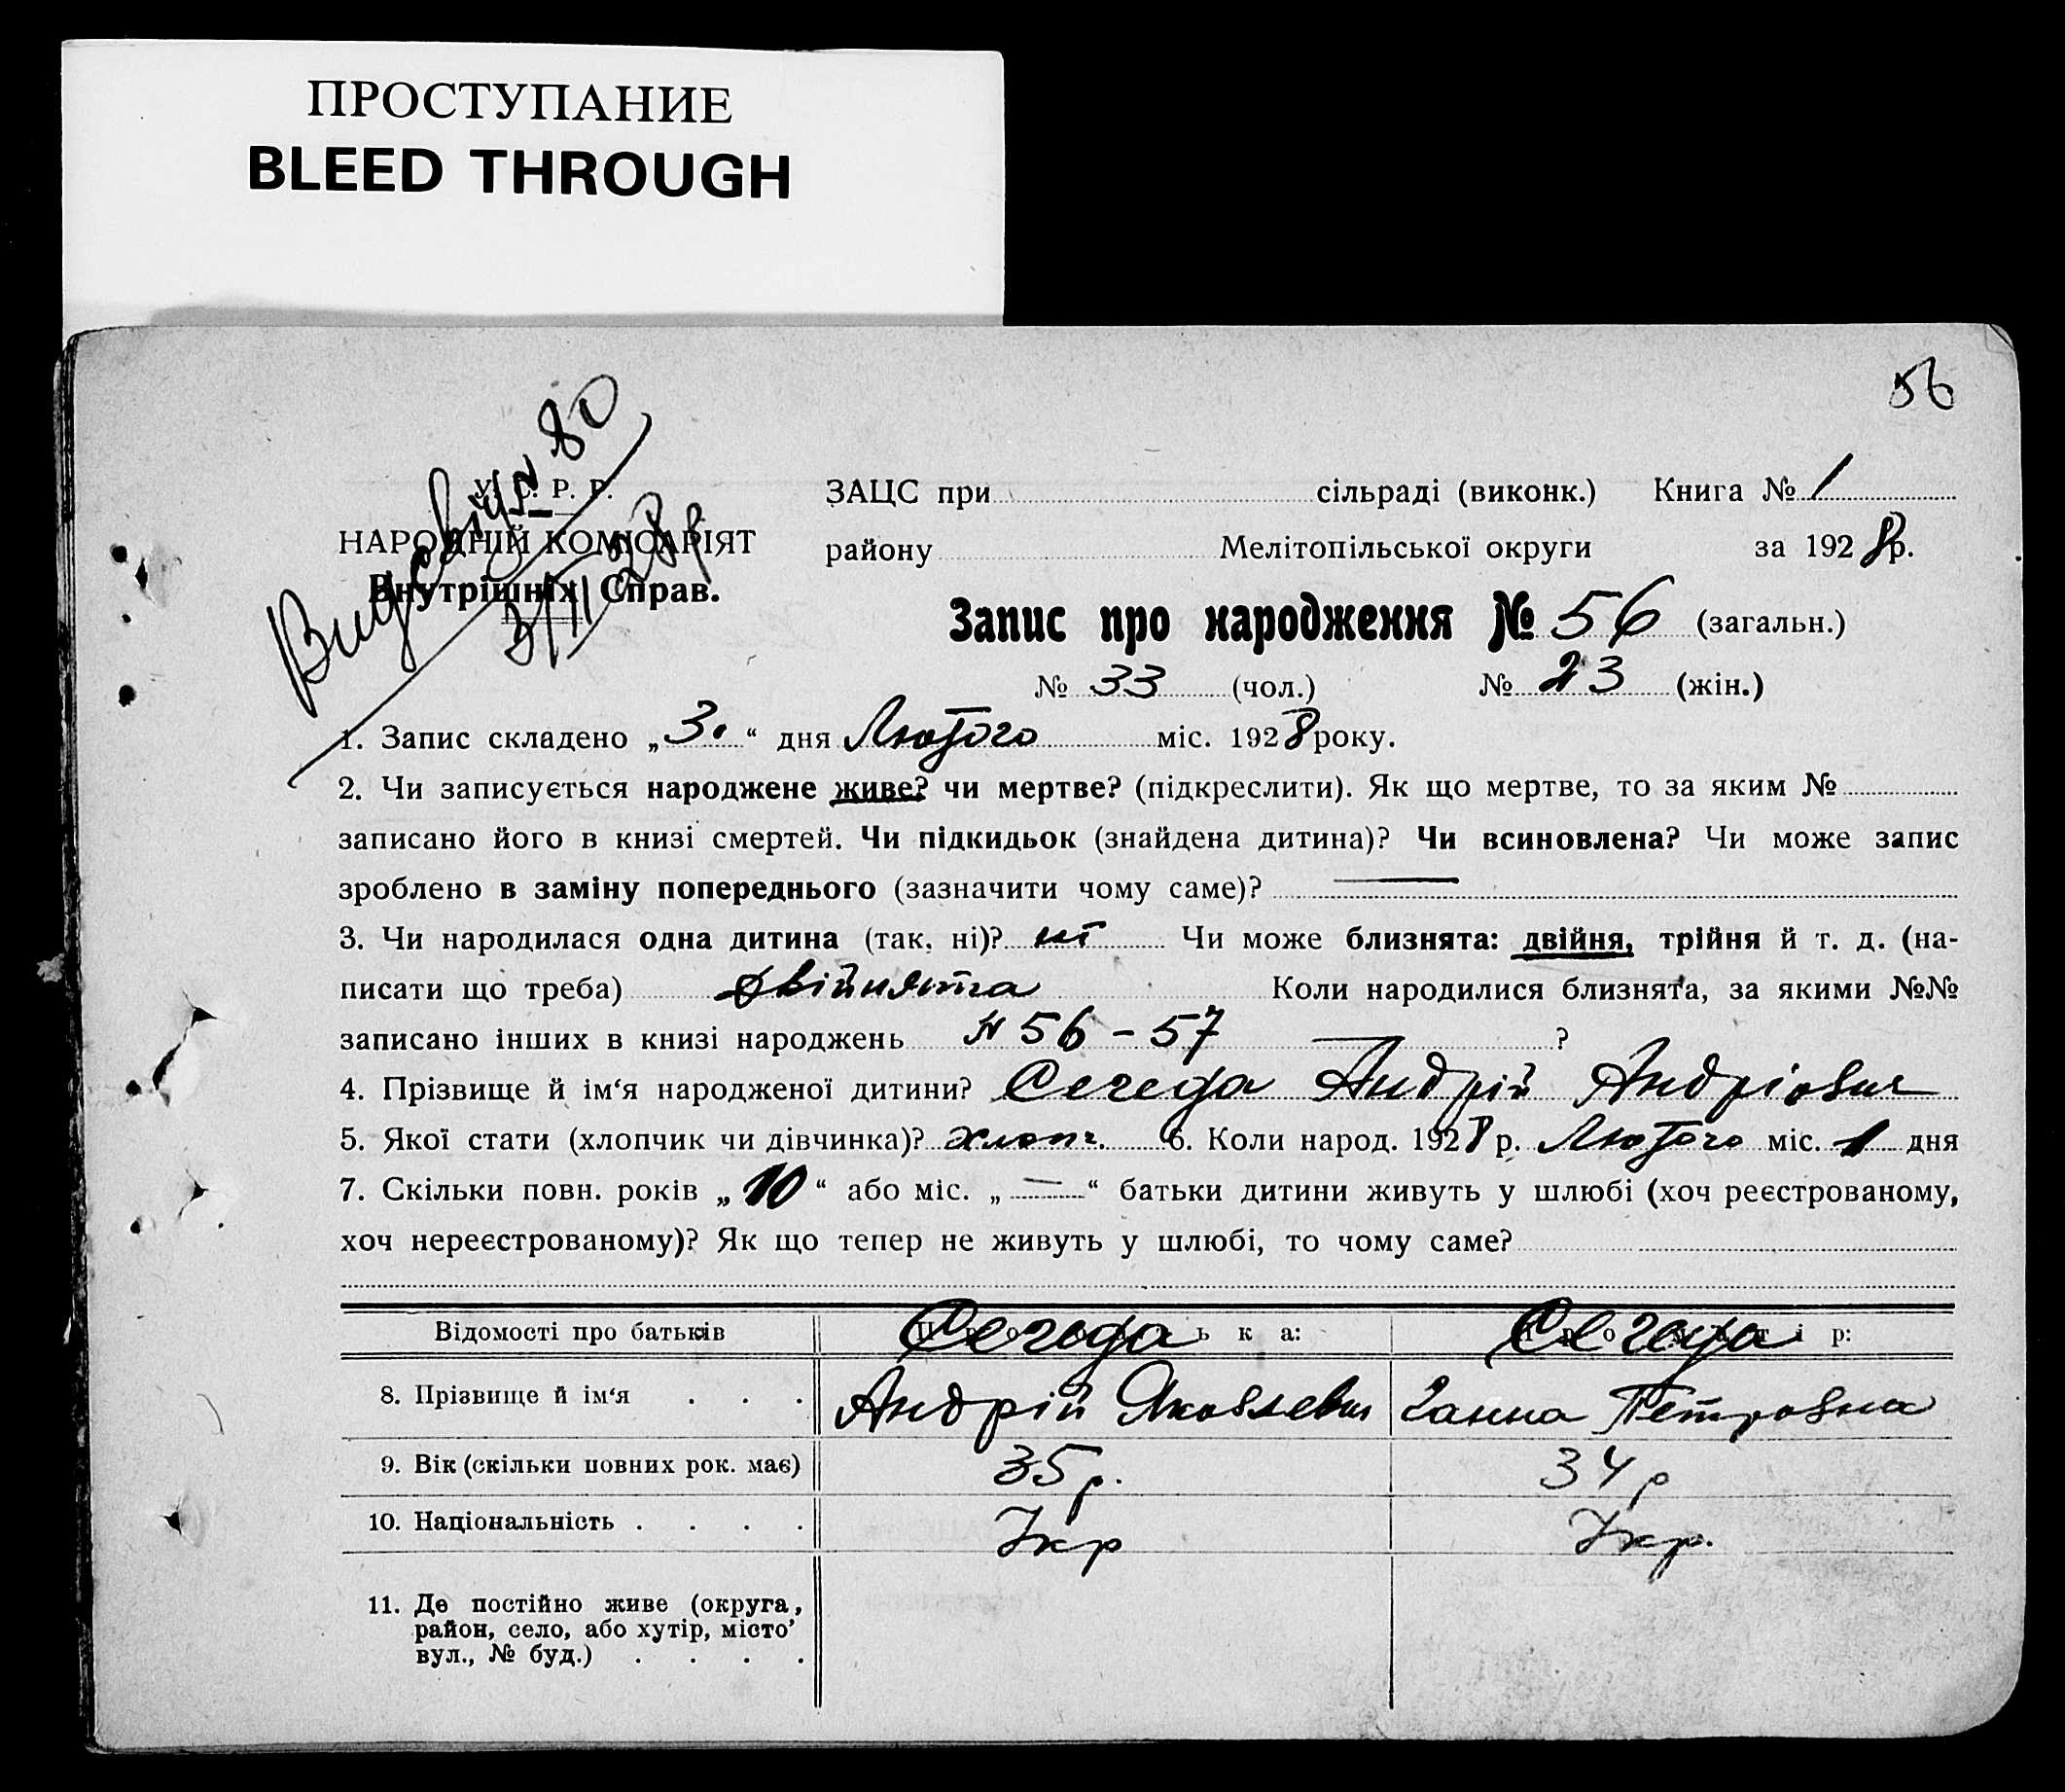 ПРОСТУПАНИЕ
BLEED THROUGH
56
У. С. Р. Р.
НАРОДНІЙ КОМІСАРІЯТ
Внутрішніх Справ.
№ 80
3/II 28 р
ЗАЦС при сільраді (виконк.) Книга № 1
району Мелітопільської округи за 1928 р.
Запис про народження № 56 (загальн.)
№ 33 (чол.) № 23 (жін.)
1. Запис складено „3“ дня Лютого міс. 1928 року.
2. Чи записується народжене живе? чи мертве? (підкреслити). Як що мертве, то за яким №
записано його в книзі смертей. Чи підкидьок (знайдена дитина)? Чи всиновлена? Чи може запис
зроблено в заміну попереднього (зазначити чому саме)? —
3. Чи народилася одна дитина (так, ні)? ні Чи може близнята: двійня, трійня й т. д. (на-
писати що треба) двійнята Коли народилися близнята, за якими №№
записано інших в книзі народжень № 56 – 57 — ?
4. Прізвище й ім‘я народженої дитини? Середа Андрій Андріович
5. Якої стати (хлопчик чи дівчинка)? хлопч. 6. Коли народ. 1928 р. Лютого міс. 1 дня
7. Скільки повн. років „10“ або міс. „—“ батьки дитини живуть у шлюбі (хоч реєстрованому,
хоч нереєстрованому)? Як що тепер не живуть у шлюбі, то чому саме?
Відомості про батьків Про батька: Середа Про матір: Середа
8. Прізвище й ім‘я . . . Андрій Яковлевич Ганна Петровна
9. Вік (скільки повних рок. має) 35 р. 34 р
10. Національність . . . . Укр Укр.
11. Де постійно живе (округа,
район, село, або хутір, місто’
вул., № буд.) . . . .